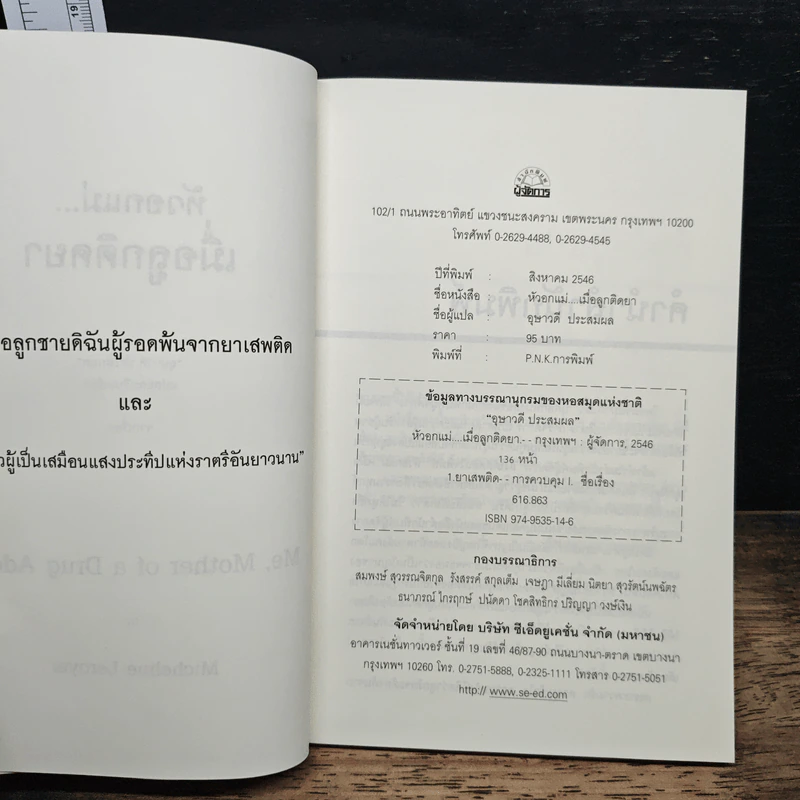 19
อลูกชายดิฉันผู้รอดพ้นจากยาเสพติด
และ
ผู้เป็นเสมือนแสงประทีปแห่งราตรีอันยาวนาน”
ผู้จัดการ
102/1 ถนนพระอาทิตย์ แขวงชนะสงคราม เขตพระนคร กรุงเทพฯ 10200
โทรศัพท์ 0-2629-4488, 0-2629-4545
ปีที่พิมพ์ : สิงหาคม 2546
ชื่อหนังสือ : หัวอกแม่....เมื่อลูกติดยา
ชื่อผู้แปล : อุษาวดี ประสมผล
ราคา : 95 บาท
พิมพ์ที่ : P.N.K.การพิมพ์
ข้อมูลทางบรรณานุกรมของหอสมุดแห่งชาติ
“อุษาวดี ประสมผล”
หัวอกแม่....เมื่อลูกติดยา.-- กรุงเทพฯ : ผู้จัดการ, 2546
136 หน้า
1.ยาเสพติด-- การควบคุม I. ชื่อเรื่อง
616.863
ISBN 974-9535-14-6
กองบรรณาธิการ
สมพงษ์ สุวรรณจิตกุล รังสรรค์ สกุลเต็ม เจษฎา มีเลี่ยม นิตยา สุวรัตน์นพฉัตร
ธนาภรณ์ ไกรฤกษ์ ปนัดดา โชคสิทธิกร ปริญญา วงษ์เงิน
จัดจำหน่ายโดย บริษัท ซีเอ็ดยูเคชั่น จำกัด (มหาชน)
อาคารเนชั่นทาวเวอร์ ชั้นที่ 19 เลขที่ 46/87-90 ถนนบางนา-ตราด เขตบางนา
กรุงเทพฯ 10260 โทร. 0-2751-5888, 0-2325-1111 โทรสาร 0-2751-5051
http:// www.se-ed.com